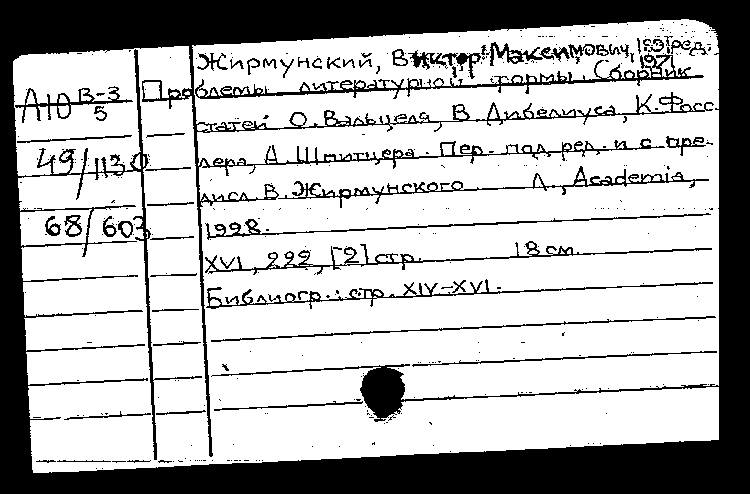 Жирмунский, Виктор Максимович, ред.
1971
А10 В-3/5 Проблемы литературной формы. Сборник
статей О. Вальцеля, В. Дибелиуса, К. Фосс-
49/1130 лера, Л. Шпитцера. Пер. под ред. и с пре-
дисл. В. Жирмунского Л., Academia,
68/603 1928.
XVI, 222, [2] стр. 18 см.
Библиогр.: стр. XIV-XVI.